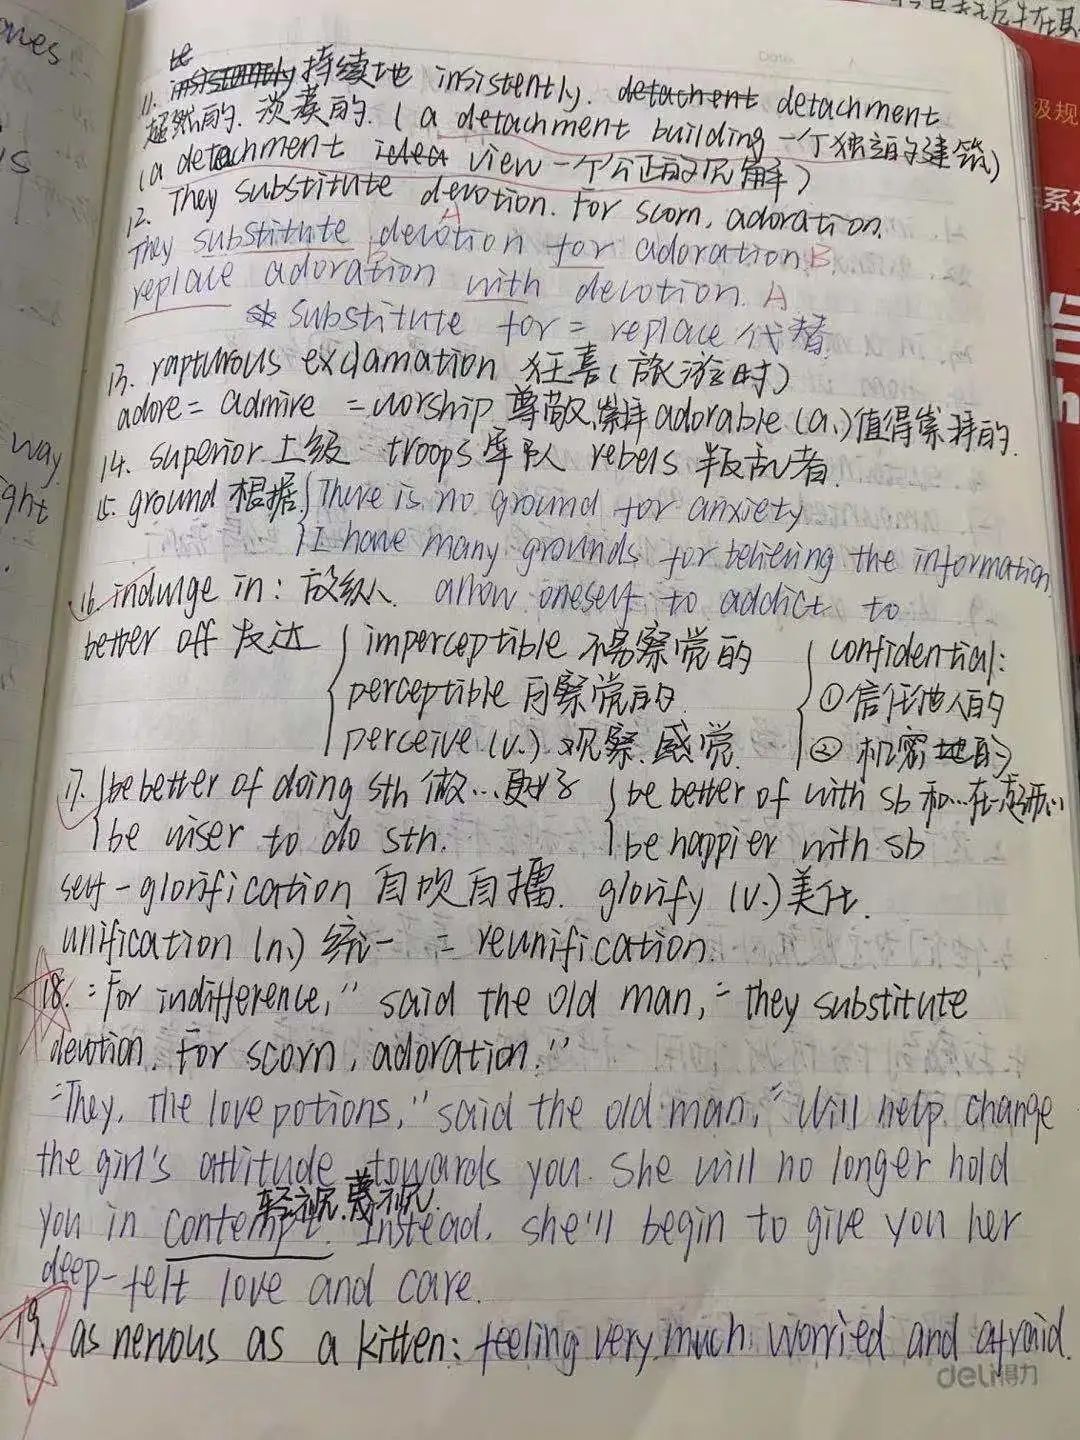 11. 持续地 insistently. detachment
超然的. 淡漠的. ( a detachment building 一个独立的建筑)
(a detachment view 一个公正的见解)
12. They substitute devotion. For scorn, adoration.
They substitute devotion for adoration B
A
replace adoration with devotion. A
B
substitute for = replace 代替.
13. rapturous exclamation 狂喜 (旅游时)
adore = admire = worship 尊敬,崇拜 adorable (a.) 值得崇拜的.
14. superior 上级 troops 军队 rebels 叛乱者.
15. ground 根据. There is no ground for anxiety
I have many grounds for believing the information
16. indulge in: 放纵. allow oneself to addict to
better off 发达 imperceptible 不易察觉的 confidential:
perceptible 可察觉的. ①信任他人的
perceive (v.) 观察.感觉. ② 机密的
17. be better of doing sth 做…更好 be better of with sb 和…在一起开心
be wiser to do sth. be happier with sb
self-glorification 自吹自擂. glorify (v.) 美化.
unification (n.) 统一 = reunification.
18. "For indifference," said the old man, "they substitute
devotion. For scorn, adoration."
"They, the love potions," said the old man, "will help change
the girl's attitude towards you. She will no longer hold
轻视.蔑视.
you in contempt. Instead, she'll begin to give you her
deep-felt love and care.
19. as nervous as a kitten: feeling very much worried and afraid.
deli得力